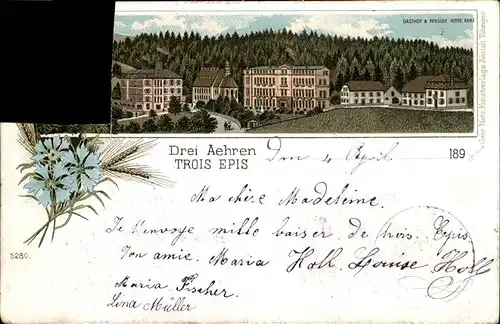 GASTHOF & PENSION NOTRE DAME
Gebr. Metz Kunstverlags Anstalt Tübingen
Drei Aehren
TROIS EPIS
Den 4 April 189
Ma chère Madeleine.
Je t'envoye mille baiser de trois. Epis.
Ton amie. Maria Holl. Louise Holl
Maria Fischer.
Lina Müller
5280.